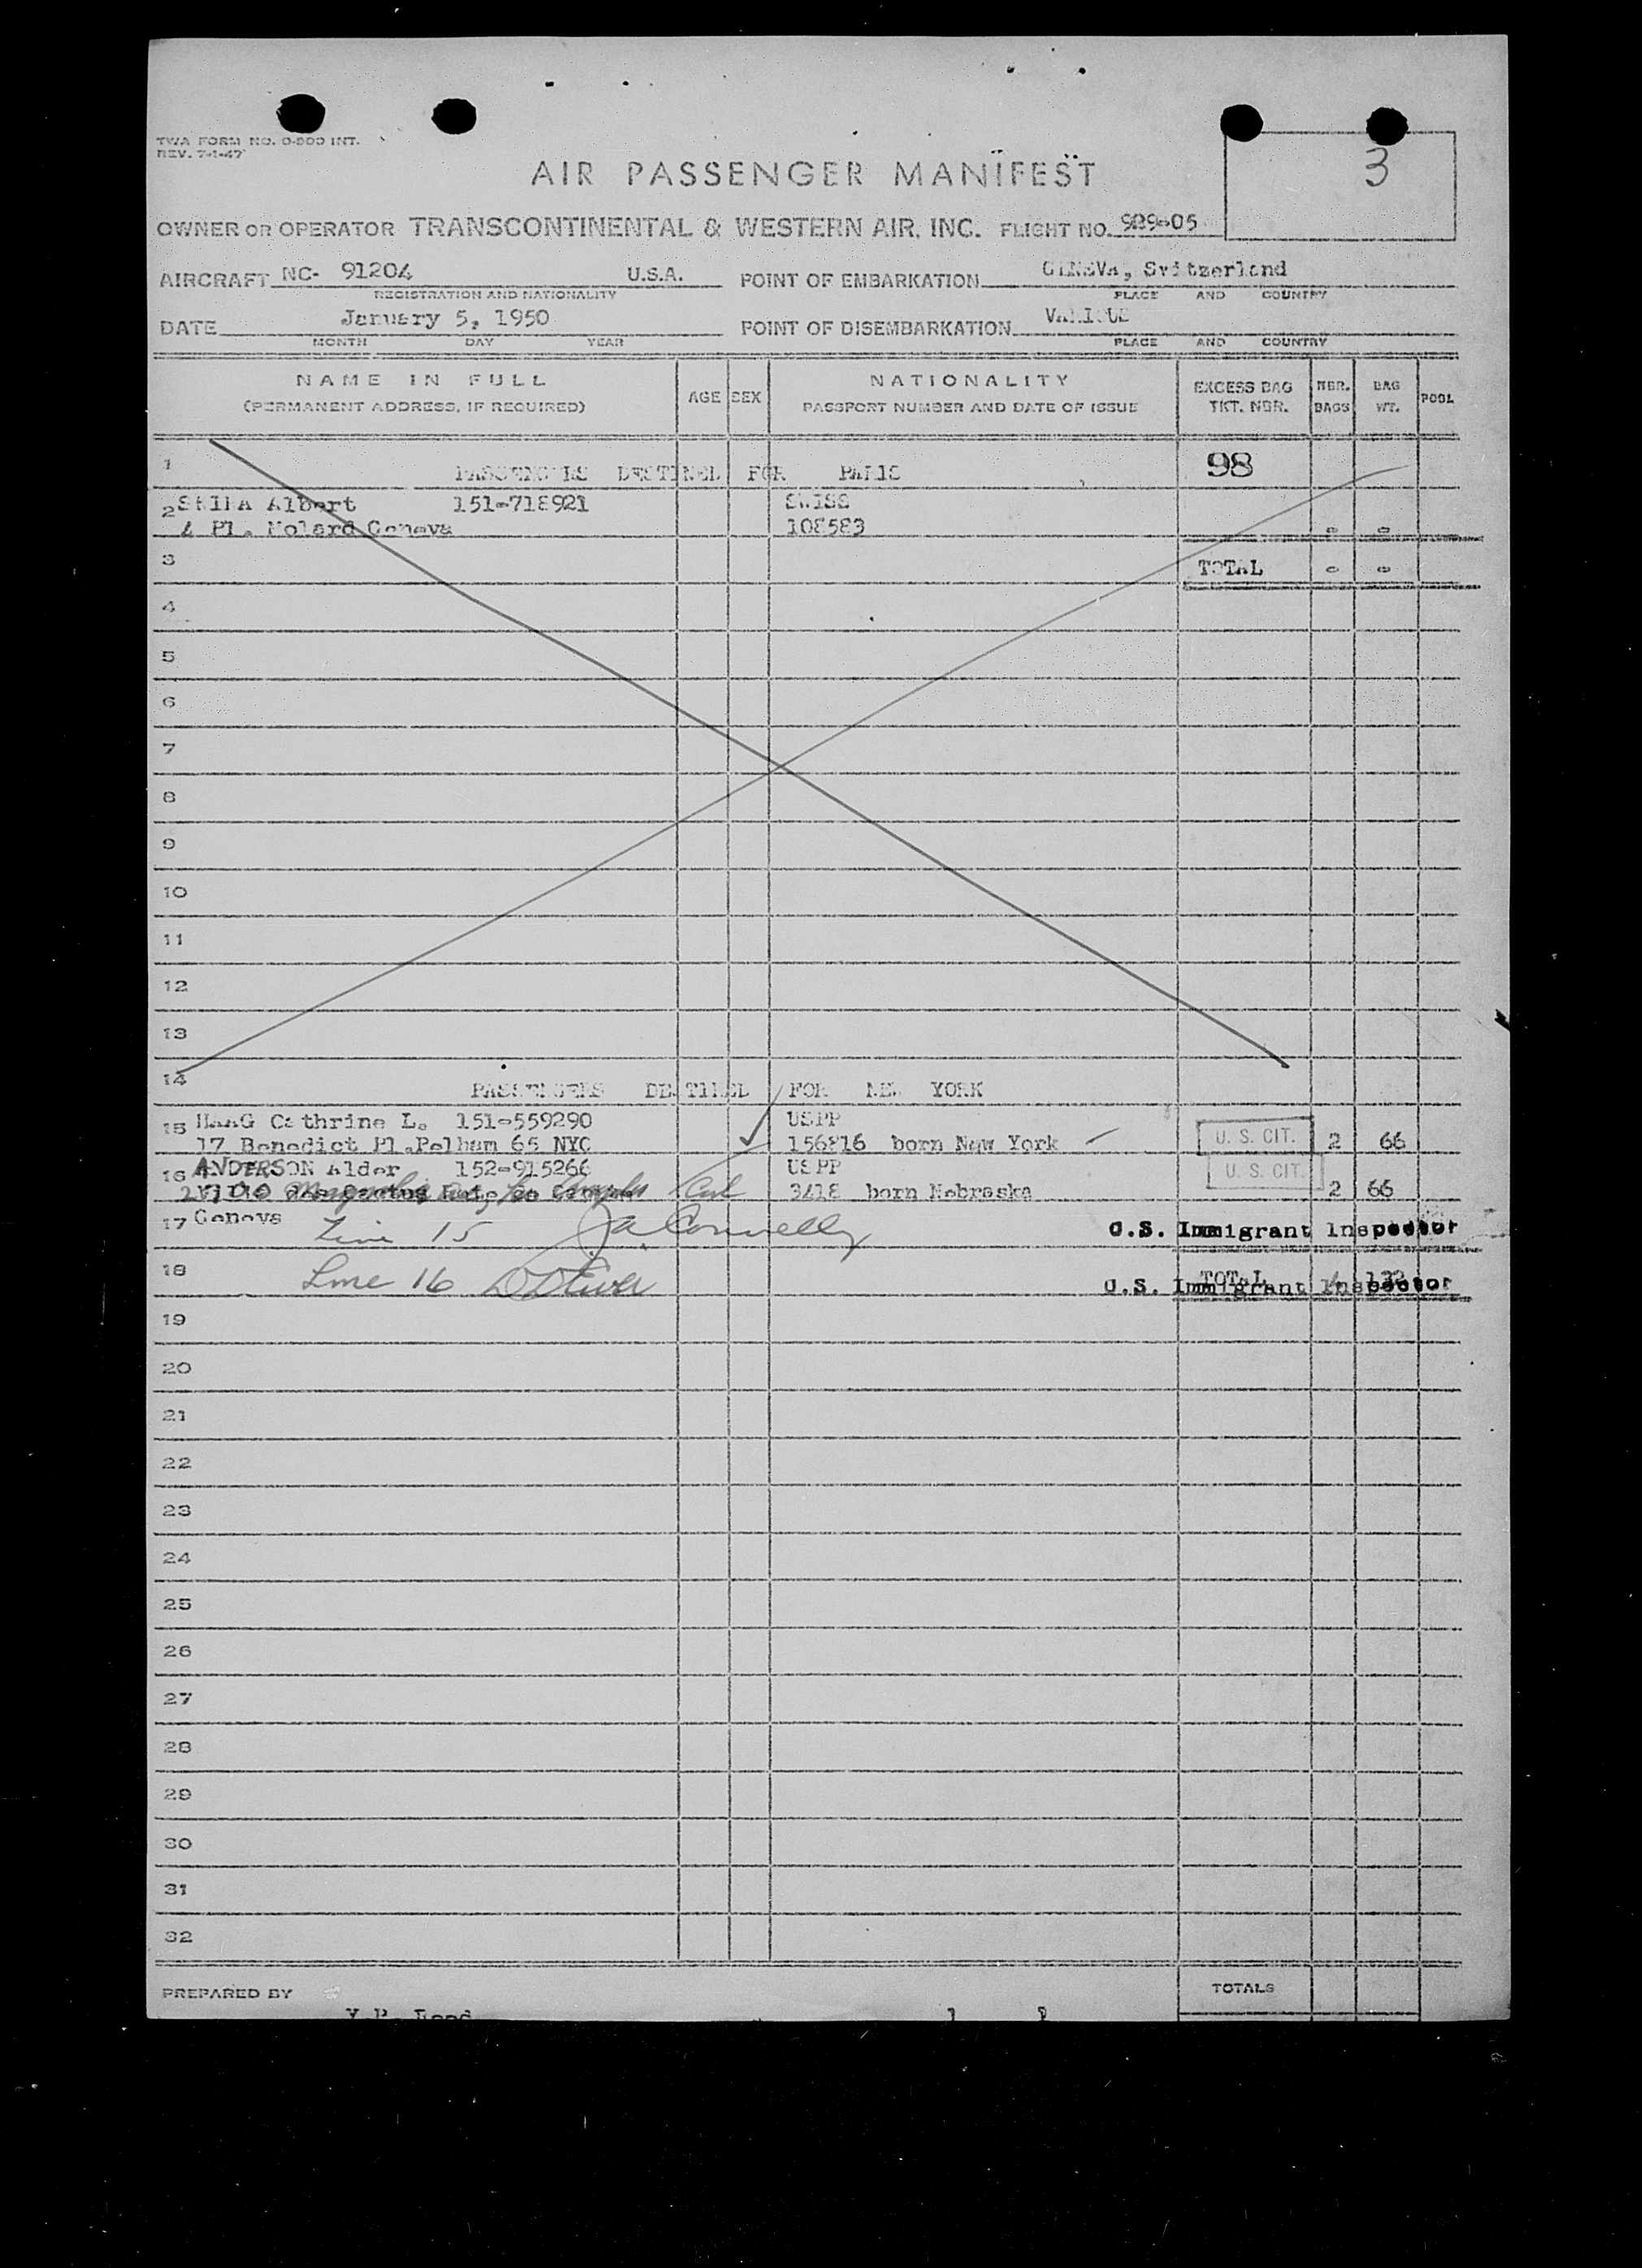 TWA FORM NO. 0-800 INT.
REV. 7-1-47
3
AIR PASSENGER MANIFEST
OWNER OR OPERATOR TRANSCONTINENTAL & WESTERN AIR, INC. FLIGHT NO. 989-05
AIRCRAFT NC- 91204 U.S.A. POINT OF EMBARKATION GENEVA, Switzerland
REGISTRATION AND NATIONALITY PLACE AND COUNTRY
DATE January 5, 1950 POINT OF DISEMBARKATION VARIOUS
MONTH DAY YEAR PLACE AND COUNTRY
NAME IN FULL
(PERMANENT ADDRESS, IF REQUIRED)
AGE SEX
NATIONALITY
PASSPORT NUMBER AND DATE OF ISSUE
EXCESS BAG TKT. NBR.
NBR. BAGS
BAG WT.
POOL
1 PASSENGERS DESTINED FOR PARIS 98
2 Albert 151-718921 SWISS
4 Pl. Molard Geneva 108583 - -
3 TOTAL - -
4
5
6
7
8
9
10
11
12
13
14 PASSENGERS DESTINED FOR NEW YORK
15 HAAG Cathrine L. 151-559290 USPP
17 Benedict Pl.Pelham 65 NYC 156816 born New York U. S. CIT. 2 66
16 ANDERSON Alder 152-915266 USPP U. S. CIT.
Cal 3418 born Nebraska 2 66
17 Geneva
Line 15 J.A. Connelly U.S. Immigrant Inspector
18 Line 16 TOTAL 4 132
U.S. Immigrant Inspector
19
20
21
22
23
24
25
26
27
28
29
30
31
32
PREPARED BY TOTALS